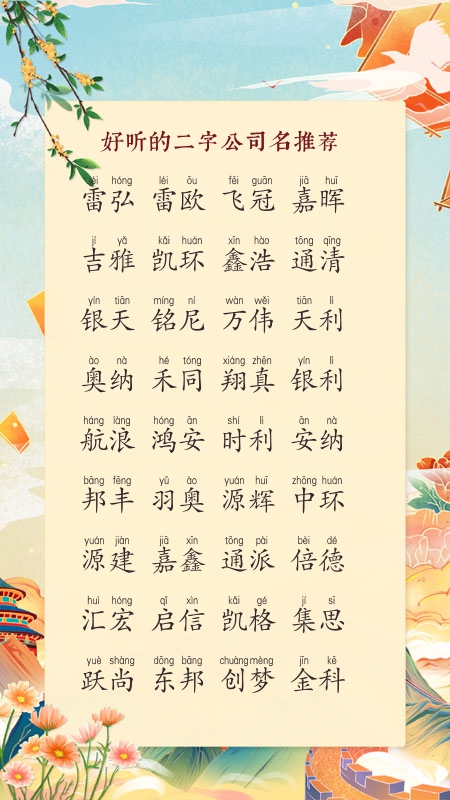 好听的二字公司名推荐
léi hóng léi ōu fēi guān jiā huī
雷弘 雷欧 飞冠 嘉晖
jí yǎ kǎi huán xīn hào tōng qīng
吉雅 凯环 鑫浩 通清
yín tiān míng ní wàn wěi tiān lì
银天 铭尼 万伟 天利
ào nà hé tóng xiáng zhēn yín lì
奥纳 禾同 翔真 银利
háng làng hóng ān shí lì ān nà
航浪 鸿安 时利 安纳
bāng fēng yǔ ào yuán huī zhōng huán
邦丰 羽奥 源辉 中环
yuán jiàn jiā xīn tōng pài bèi dé
源建 嘉鑫 通派 倍德
huì hóng qǐ xìn kǎi gé jí sī
汇宏 启信 凯格 集思
yuè shàng dōng bāng chuàng mèng jīn kē
跃尚 东邦 创梦 金科